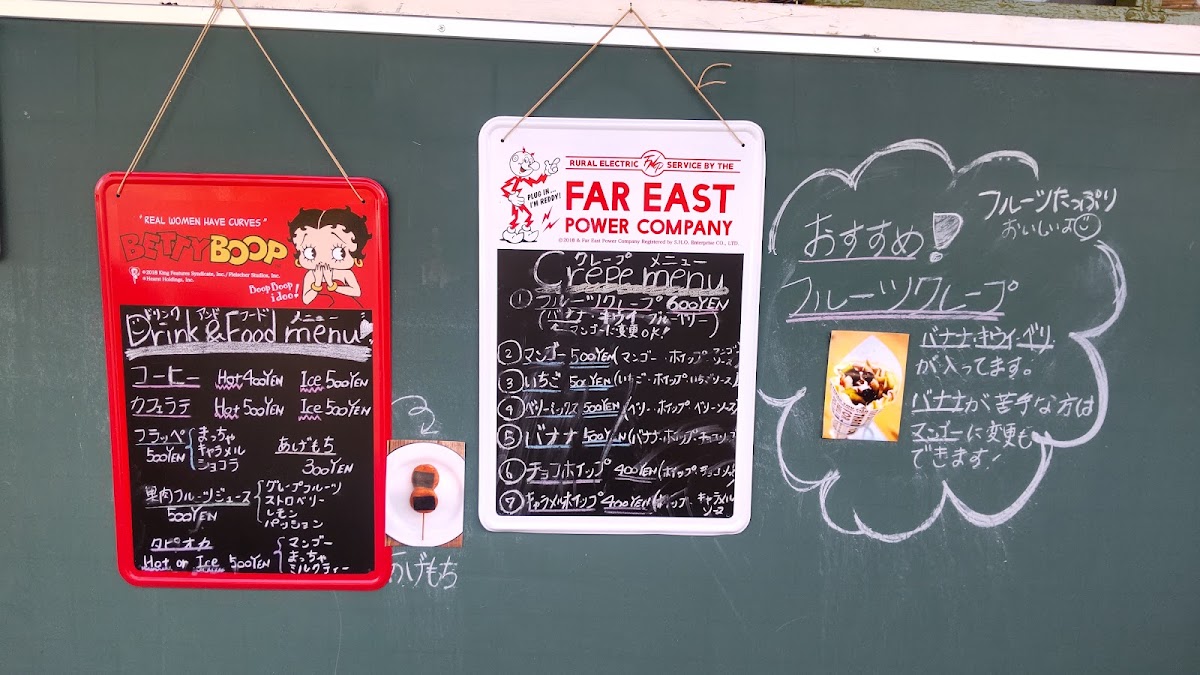 "REAL WOMEN HAVE CURVES"
BETTY BOOP
©2018 King Features Syndicate, Inc./Fleischer Studios, Inc.
®Hearst Holdings, Inc.
Doop Doop
i doo!
ドリンク アンド フード メニュー
Drink & Food menu
コーヒー Hot 400YEN Ice 500YEN
カフェラテ Hot 500YEN Ice 500YEN
フラッペ
500YEN
まっちゃ
キャラメル
ショコラ
あげもち
300YEN
果肉フルーツジュース
500YEN
グレープフルーツ
ストロベリー
レモン
パッション
タピオカ
Hot or Ice 500YEN
マンゴー
まっちゃ
ミルクティー
あげもち
RURAL ELECTRIC SERVICE BY THE
PLUG IN...
I'M REDDY!
FAR EAST
POWER COMPANY
©2018 A Far East Power Company Registered by S.H.O. Enterprise CO., LTD.
クレープ メニュー
Crepe menu
① フルーツクレープ 600YEN
(バナナ・キウイ・ブルーベリー)
マンゴーに変更OK!
② マンゴー 500YEN (マンゴー・ホイップ マンゴーソース)
③ いちご 50YEN (いちご・ホイップ いちごソース)
④ ベリーミックス 500YEN (ベリー・ホイップ ベリーソース)
⑤ バナナ 500YEN (バナナ・ホイップ・チョコソース)
⑥ チョコホイップ 400YEN (ホイップ、チョコソース)
⑦ キャラメルホイップ 400YEN (ホイップ キャラメルソース
フルーツたっぷり
おいしいよ
おすすめ!
フルーツクレープ
バナナ・キウイ・ベリー
が入ってます。
バナナが苦手な方は
マンゴーに変更も
できます!